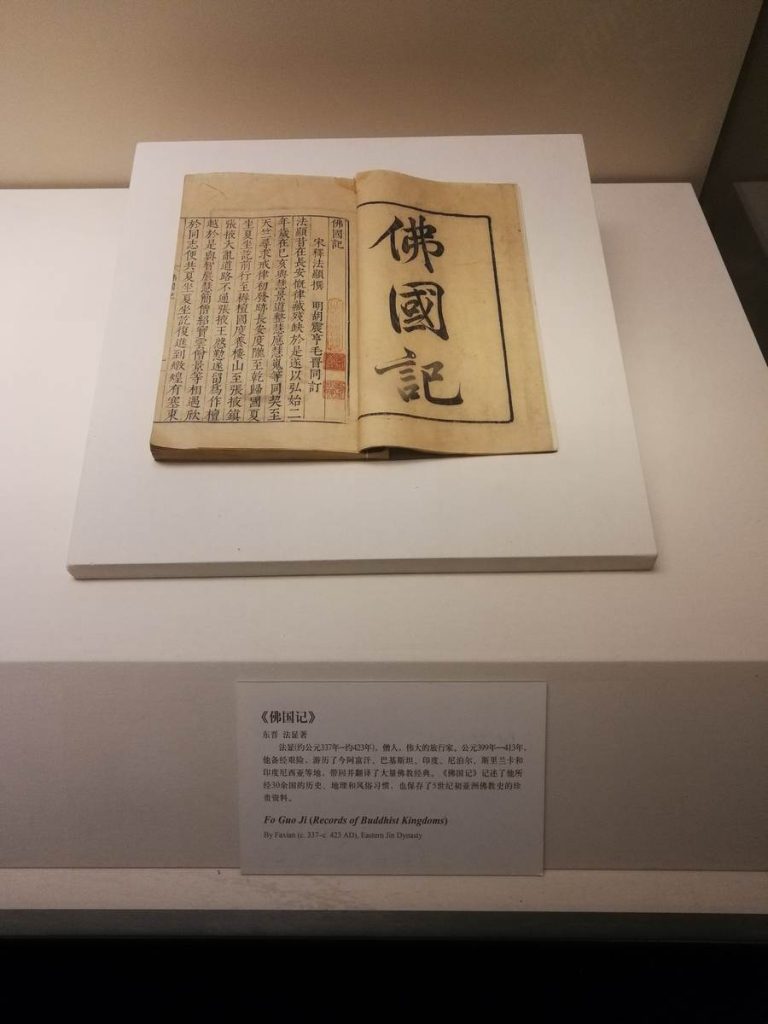 佛國記
佛國記
宋釋法顯撰 明胡震亨毛晉同訂
法顯昔在長安慨律藏殘缺於是遂以弘始二
年歲在巳亥與慧景道整慧應慧嵬等同契至
天竺尋求戒律初發跡長安度隴至乾歸國夏
坐夏坐訖前行至耨檀國度養樓山至張掖鎮
張掖大亂道路不通張掖王慇懃遂留爲作檀
越於是與智嚴慧簡僧紹寶雲僧景等相遇欣
於同志便共夏坐夏坐訖復進到燉煌有塞東
佛國記
《佛国记》
东晋 法显著
法显(约公元337年—约423年)，僧人，伟大的旅行家。公元399年—413年，
他备经艰险，游历了今阿富汗、巴基斯坦、印度、尼泊尔、斯里兰卡和
印度尼西亚等地，带回并翻译了大量佛教经典。《佛国记》记述了他所
经30余国的历史、地理和风俗习惯，也保存了5世纪初亚洲佛教史的珍
贵资料。
Fo Guo Ji (Records of Buddhist Kingdoms)
By Faxian (c. 337–c. 423 AD), Eastern Jin Dynasty